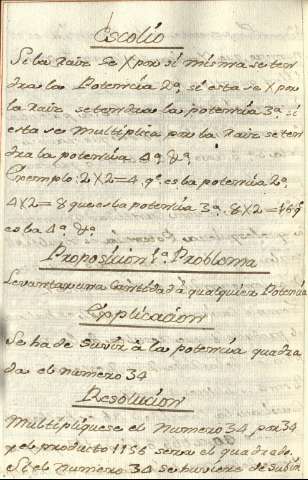 Escolio
Si la raiz se X por si misma se ten
dra la Potencia 2ª si esta se X por
la raiz se tendra la potencia 3ª si
esta se multiplica por la raiz se ten
dra la potencia 4ª &ª
Exemplo: 2X2=4 qᵉ es la potencia 2ª
4X2=8 que es la potencia 3ª 8X2=16 qᵉ
es la 4ª &ª
Proposicion 1ª Problema
Levantar una Cantidad á qualquier Potencia
Explicacion
Se ha de subir á la potencia quadra
da el numero 34
Resolucion
Multipliquese el numero 34 por 34
y el producto 1156 sera el quadrado
Si el numero 34 se huviere de subir